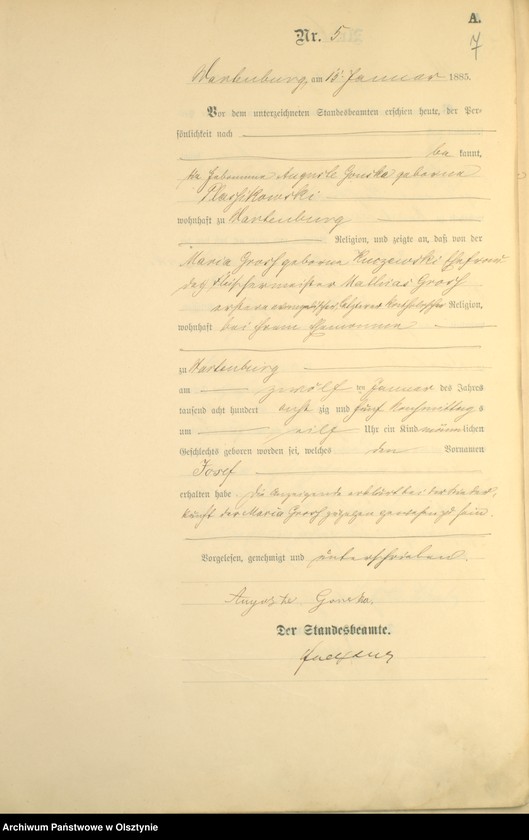 A.
Nr. 5
7
Wartenburg, am 13. Januar 1885.
Vor dem unterzeichneten Standesbeamten erschien heute, der Per-
sönlichkeit nach
be kannt,
die Hebamme Auguste Gonska geborene
wohnhaft zu Wartenburg
Religion, und zeigte an, daß von der
Maria Grosch geborene Kuczewski Ehefrau
des Fleischermeister Mathias Grosch
erstere evangelischer letzterer katholischer Religion,
wohnhaft bei ihrem Ehemanne
zu Wartenburg
am zwölf ten Januar des Jahres
tausend acht hundert acht zig und fünf Vormittags
um eilf Uhr ein Kind männlichen
Geschlechts geboren worden sei, welches den Vornamen
Josef
erhalten habe. Die Anzeigende erklärt bei der Nieder-
kunft der Maria Grosch zugegen gewesen zu sein.
Vorgelesen, genehmigt und unterschrieben.
Auguste Gonska.
Der Standesbeamte.
Archiwum Państwowe w Olsztynie